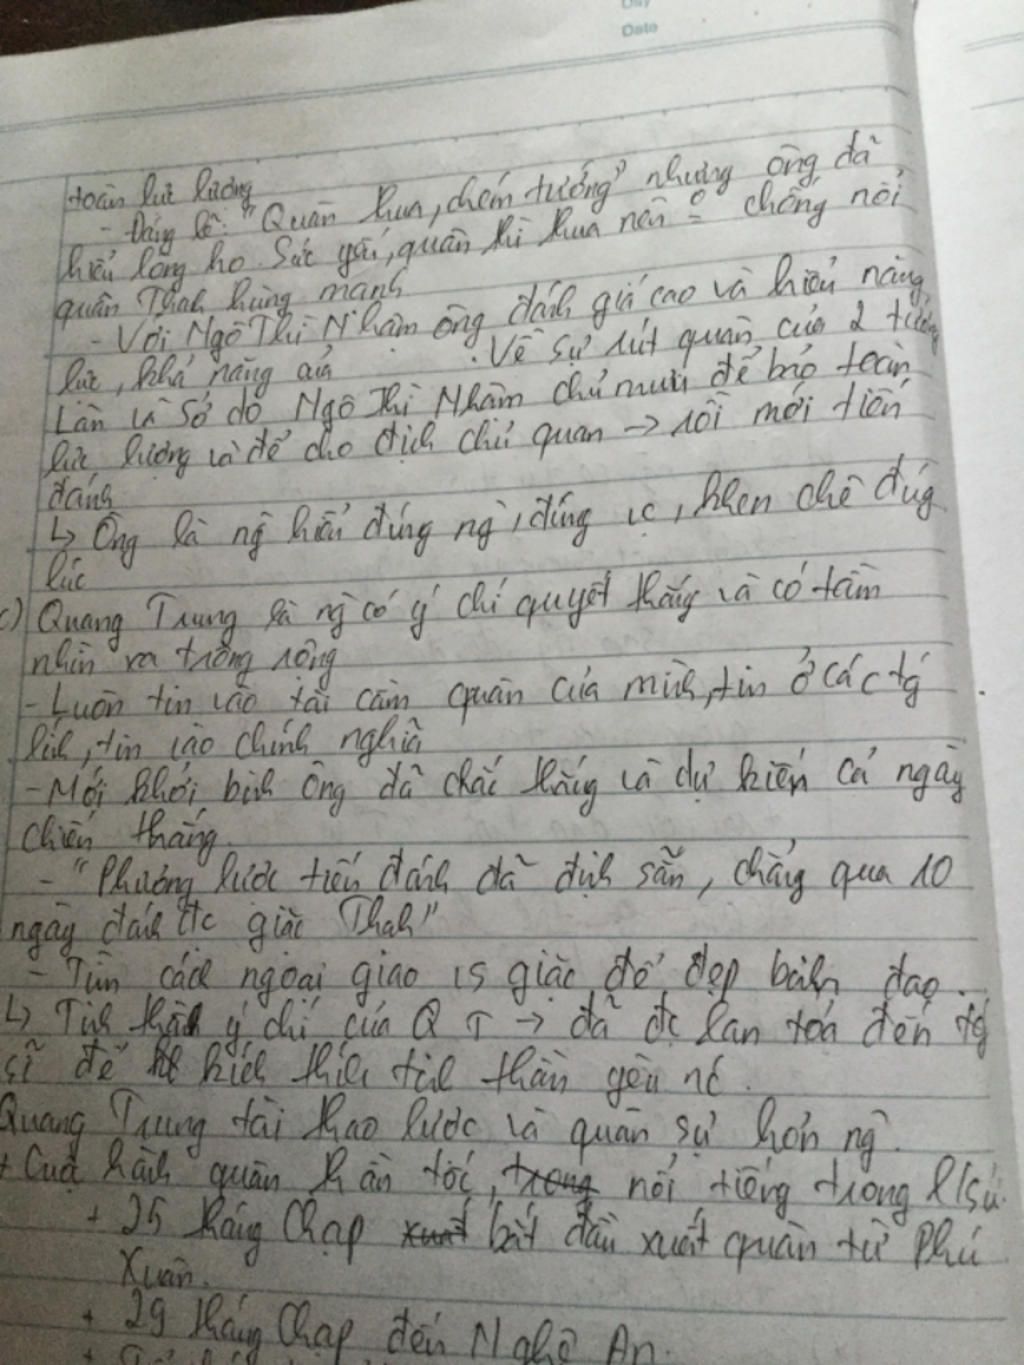 Day
Date
toàn lực lượng
- Đáng lẽ: "Quân thua, chém tướng" nhưng ông đã
hiểu lòng họ. Sức yếu, quân thì thua nên chống nổi
quân Thanh hùng mạnh
- Với Ngô Thì Nhậm ông đánh giá cao và hiểu năng
lực, khả năng của. Về sự rút quân của 2 tướng
Lân và Sở do Ngô Thì Nhậm chủ mưu để bảo toàn
lực lượng và để cho địch chủ quan → rồi mới tiến
đánh
↳ Ông là ng hiểu đúng ng`, đúng vc, khen chê đúg
lúc
c) Quang Trung là ng` có ý chí quyết thắng và có tầm
nhìn xa trông rộng
- Luôn tin vào tài cầm quân của mình, tin ở các tg
lĩnh, tin vào chính nghĩa
- Mới khởi binh ông đã chắc thắng và dự kiến cả ngày
chiến thắng.
- "Phương lược tiến đánh đã định sẵn, chẳng qua 10
ngày đánh đc giặc Thanh"
- Tìm cách ngoại giao vs giặc để dẹp binh đao.
↳ Tinh thần ý chí của Q T → đã đc lan toả đến tg
sĩ để kích thích tinh thần yêu nc.
Quang Trung tài thao lược và quân sự hơn ng`.
+ Cuộc hành quân thần tốc, trong nổi tiếng trong l/sử.
+ 25 tháng Chạp xuất bắt đầu xuất quân từ Phú
Xuân.
+ 29 tháng Chạp đến Nghệ An.